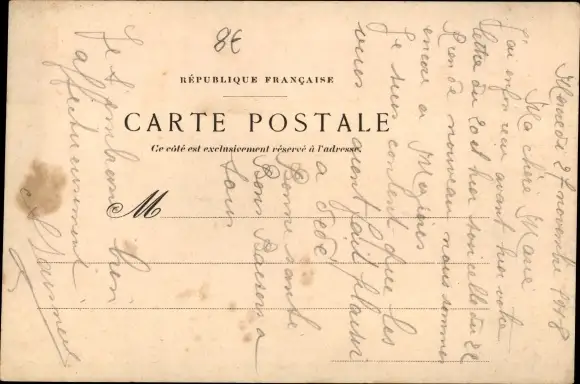 8€
RÉPUBLIQUE FRANÇAISE
CARTE POSTALE
Ce côté est exclusivement réservé à l'adresse.
M
27 novembre 1918
Ma chère Marie
J'ai enfin reçu avant hier votre
lettre du 20 et hier soir celle du 22
Rien de nouveau nous sommes
encore a Mezieres
Je suis content que les
vues aient fait plaisir
a Dédé
Bonne santé
Bons Baisers a
tous
Je t'embrasse bien
affectueusement